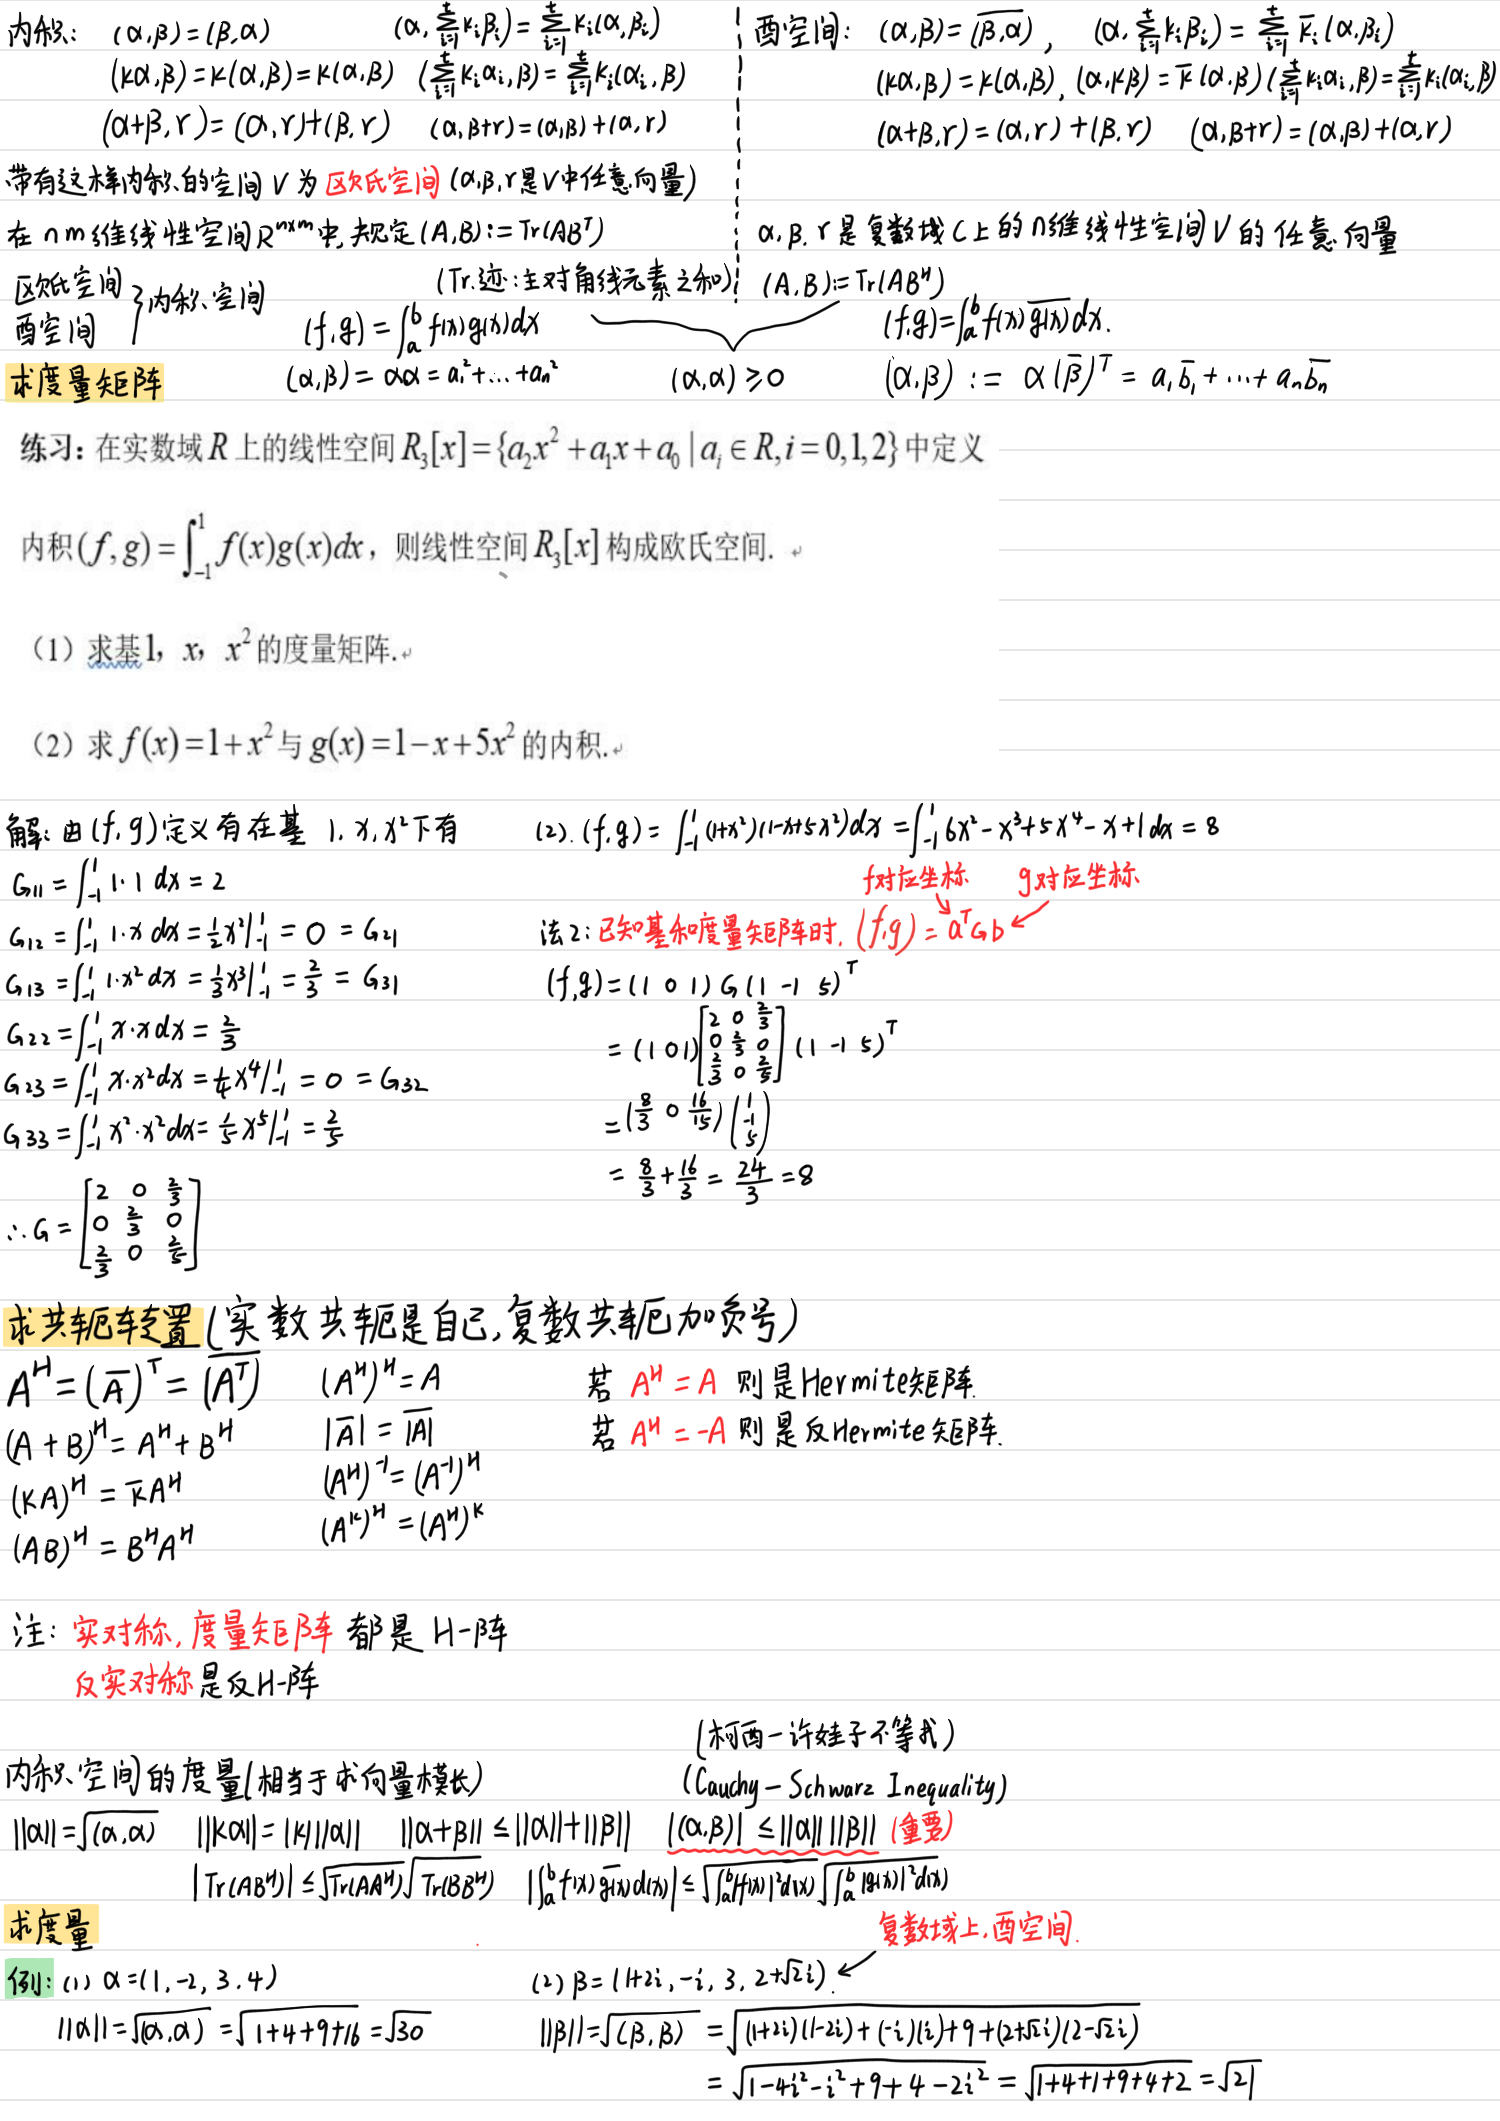 内积: (α,β)=(β,α) (α,∑_{i=1}^{t}k_iβ_i)=∑_{i=1}^{t}k_i(α,β_i)
(kα,β)=k(α,β)=k(α,β) (∑_{i=1}^{t}k_iα_i,β)=∑_{i=1}^{t}k_i(α_i,β)
(α+β,r)=(α,r)+(β,r) (α,β+r)=(α,β)+(α,r)
带有这样内积的空间V为欧氏空间(α,β,r是V中任意向量)
在nm维线性空间R^{n×m}中,规定(A,B):=Tr(AB^T)
(Tr:迹:主对角线元素之和)
酉空间: (α,β)=\overline{(β,α)}, (α,∑_{i=1}^{t}k_iβ_i)=∑_{i=1}^{t}\overline{k}_i(α,β_i)
(kα,β)=k(α,β), (α,kβ)=\overline{k}(α,β) (∑_{i=1}^{t}k_iα_i,β)=∑_{i=1}^{t}k_i(α_i,β)
(α+β,r)=(α,r)+(β,r) (α,β+r)=(α,β)+(α,r)
α,β,r是复数域C上的n维线性空间V的任意向量
(A,B):=Tr(AB^H)
欧氏空间
酉空间 } 内积空间
(f,g)=∫_a^b f(x)g(x)dx (f,g)=∫_a^b f(x)\overline{g(x)}dx.
求度量矩阵 (α,β)=αα=a_1^2+…+a_n^2 (α,α)≥0 (α,β):=α(\overline{β})^T=a_1\overline{b}_1+…+a_n\overline{b_n}
练习: 在实数域R上的线性空间R_3[x]={a_2x^2+a_1x+a_0|a_i∈R,i=0,1,2}中定义
内积(f,g)=∫_{-1}^{1}f(x)g(x)dx，则线性空间R_3[x]构成欧氏空间.
（1）求基1，x，x^2的度量矩阵.
（2）求f(x)=1+x^2与g(x)=1-x+5x^2的内积.
解: 由(f,g)定义有在基 1,x,x^2下有
G_11=∫_{-1}^{1}1·1dx=2
G_12=∫_{-1}^{1}1·xdx=½x^2|_{-1}^{1}=0=G_21
G_13=∫_{-1}^{1}1·x^2dx=⅓x^3|_{-1}^{1}=⅔=G_31
G_22=∫_{-1}^{1}x·xdx=⅔
G_23=∫_{-1}^{1}x·x^2dx=¼x^4|_{-1}^{1}=0=G_32
G_33=∫_{-1}^{1}x^2·x^2dx=⅕x^5|_{-1}^{1}=⅖
∴G=[2 0 ⅔; 0 ⅔ 0; ⅔ 0 ⅖]
(2).(f,g)=∫_{-1}^{1}(1+x^2)(1-x+5x^2)dx=∫_{-1}^{1}6x^2-x^3+5x^4-x+1dx=8
f对应坐标 g对应坐标
法2: 已知基和度量矩阵时,(f,g)=a^TGb
(f,g)=(1 0 1)G(1 -1 5)^T
=(1 0 1)[2 0 ⅔; 0 ⅔ 0; ⅔ 0 ⅖](1 -1 5)^T
=(8/3 0 16/15)(1 -1 5)
=8/3+16/3=24/3=8
求共轭转置(实数共轭是自己,复数共轭加负号)
A^H=(\overline{A})^T=\overline{(A^T)} (A^H)^H=A 若 A^H=A 则是Hermite矩阵.
(A+B)^H=A^H+B^H |\overline{A}|=\overline{|A|} 若 A^H=-A 则是反Hermite矩阵.
(kA)^H=\overline{k}A^H (A^H)^{-1}=(A^{-1})^H
(AB)^H=B^HA^H (A^k)^H=(A^H)^k
注: 实对称,度量矩阵 都是 H-阵
反实对称是反H-阵
(柯西-许娃子不等式)
内积空间的度量(相当于求向量模长) (Cauchy-Schwarz Inequality)
||α||=√(α,α) ||kα||=|k|||α|| ||α+β||≤||α||+||β|| |(α,β)|≤||α||||β|| (重要)
|Tr(AB^H)|≤√Tr(AA^H)√Tr(BB^H) |∫_a^b f(x)\overline{g(x)}d(x)|≤√∫_a^b|f(x)|^2d(x)√∫_a^b|g(x)|^2d(x)
求度量
复数域上,酉空间.
例: (1) α=(1,-2,3,4) (2) β=(1+2i,-i,3,2+√2i).
||α||=√(α,α)=√1+4+9+16=√30 ||β||=√(β,β)=√(1+2i)(1-2i)+(-i)(i)+9+(2+√2i)(2-√2i)
=√1-4i^2-i^2+9+4-2i^2=√1+4+1+9+4+2=√21